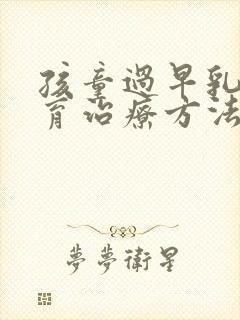 孩童過早乳
育治療方法
夢夢衛星